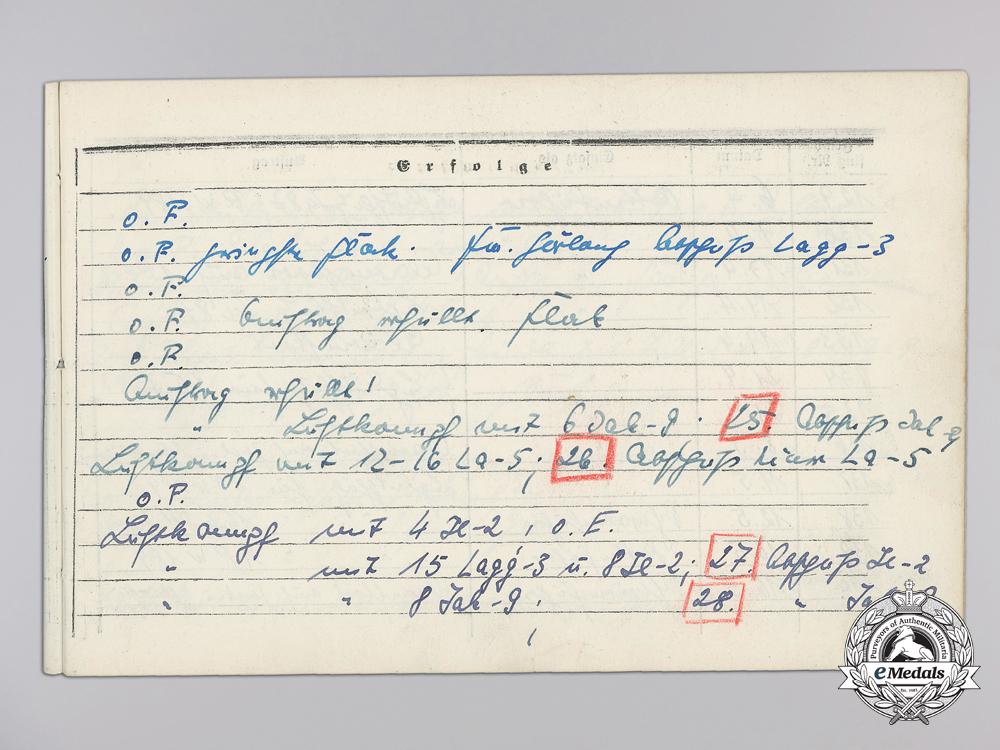 Erfolge
o. F.
o. F. Flak. Abschuß Lagg-3
o. F.
o. F. Auftrag erfüllt. Flak
o. F.
Auftrag erfüllt!
" Luftkampf mit 6 Jak-9. 25. Abschuß Jak-9
Luftkampf mit 12-16 La-5; 26. Abschuß einer La-5
o. F.
Luftkampf mit 4 Il-2, o. E.
" mit 15 Lagg-3 u. 8 Il-2; 27. Abschuß Il-2
" " 8 Jak-9; 28. "
Purveyors of Authentic Militaria
eMedals